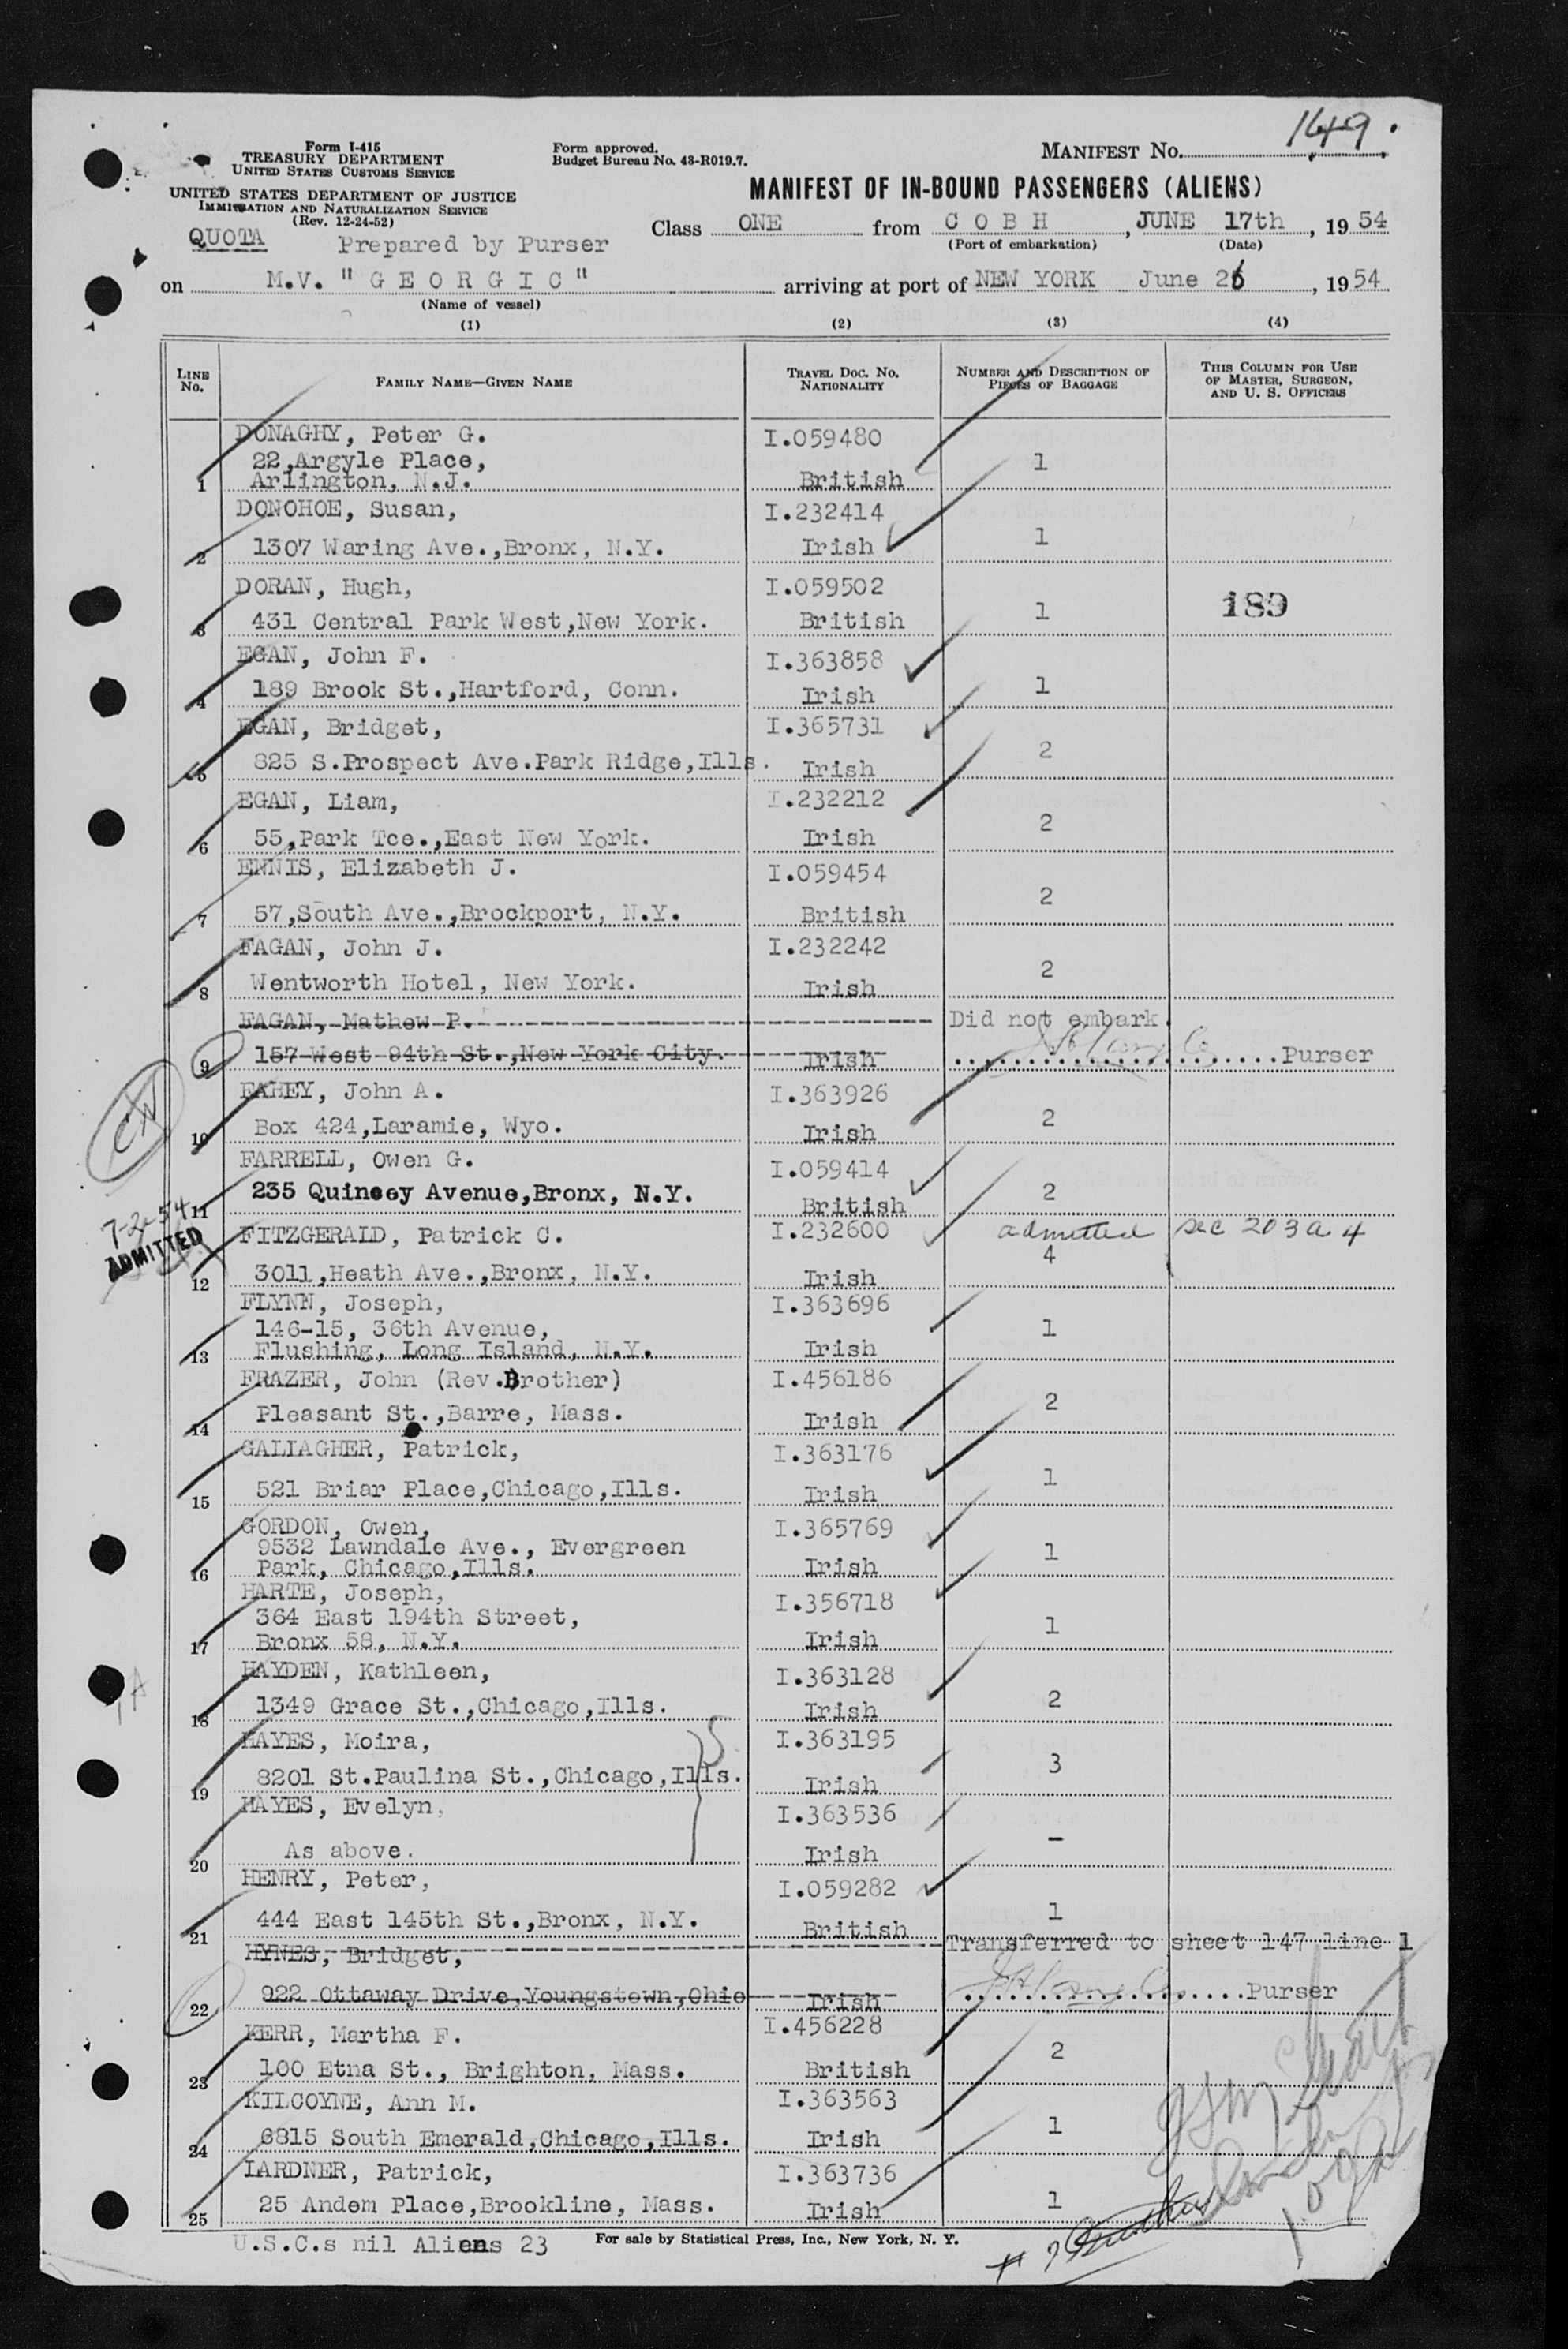 149.
Form I-415
TREASURY DEPARTMENT
UNITED STATES CUSTOMS SERVICE
UNITED STATES DEPARTMENT OF JUSTICE
IMMIGRATION AND NATURALIZATION SERVICE
(Rev. 12-24-52)
Form approved.
Budget Bureau No. 43-R019.7.
MANIFEST No.
MANIFEST OF IN-BOUND PASSENGERS (ALIENS)
QUOTA Prepared by Purser
Class ONE from C O B H, JUNE 17th, 19 54
(Port of embarkation) (Date)
on M.V. "G E O R G I C" arriving at port of NEW YORK June 26, 19 54
(Name of vessel)
(1) (2) (3) (4)
LINE No. FAMILY NAME—GIVEN NAME TRAVEL DOC. NO. NATIONALITY NUMBER AND DESCRIPTION OF PIECES OF BAGGAGE THIS COLUMN FOR USE OF MASTER, SURGEON, AND U. S. OFFICERS
DONAGHY, Peter G. I.059480
22,Argyle Place, 1
1 Arlington, N.J. British
DONOHOE, Susan, I.232414
2 1307 Waring Ave.,Bronx, N.Y. Irish 1
DORAN, Hugh, I.059502 189
3 431 Central Park West,New York. British 1
EGAN, John F. I.363858
4 189 Brook St.,Hartford, Conn. Irish 1
EGAN, Bridget, I.365731
5 825 S.Prospect Ave.Park Ridge,Ills. Irish 2
EGAN, Liam, I.232212
6 55,Park Tce.,East New York. Irish 2
ENNIS, Elizabeth J. I.059454
7 57,South Ave.,Brockport, N.Y. British 2
FAGAN, John J. I.232242
8 Wentworth Hotel, New York. Irish 2
FAGAN, Mathew P. Did not embark.
9 157 West 94th St.,New York City. Irish Purser
FAHEY, John A. I.363926
10 Box 424,Laramie, Wyo. Irish 2
FARRELL, Owen G. I.059414
11 235 Quincey Avenue,Bronx, N.Y. British 2
7-2-54
ADMITTED
FITZGERALD, Patrick C. I.232600 admitted sec 203a 4
12 3011,Heath Ave.,Bronx, N.Y. Irish 4
FLYNN, Joseph, I.363696
146-15, 36th Avenue, 1
13 Flushing, Long Island, N.Y. Irish
FRAZER, John (Rev.Brother) I.456186
14 Pleasant St.,Barre, Mass. Irish 2
GALLAGHER, Patrick, I.363176
15 521 Briar Place,Chicago,Ills. Irish 1
GORDON, Owen, I.365769
9532 Lawndale Ave., Evergreen 1
16 Park, Chicago,Ills. Irish
HARTE, Joseph, I.356718
364 East 194th Street, 1
17 Bronx 58, N.Y. Irish
HAYDEN, Kathleen, I.363128
18 1349 Grace St.,Chicago,Ills. Irish 2
HAYES, Moira, I.363195
19 8201 St.Paulina St.,Chicago,Ills. Irish 3
HAYES, Evelyn, I.363536
20 As above. Irish -
HENRY, Peter, I.059282
21 444 East 145th St.,Bronx, N.Y. British 1
HYNES, Bridget, Transferred to sheet 147 line 1
22 922 Ottaway Drive,Youngstown,Ohio Irish Purser
KERR, Martha F. I.456228
23 100 Etna St., Brighton, Mass. British 2
KILCOYNE, Ann M. I.363563
24 6815 South Emerald,Chicago,Ills. Irish 1
LARDNER, Patrick, I.363736
25 25 Andem Place,Brookline, Mass. Irish 1
U.S.C.s nil Aliens 23
For sale by Statistical Press, Inc., New York, N. Y.